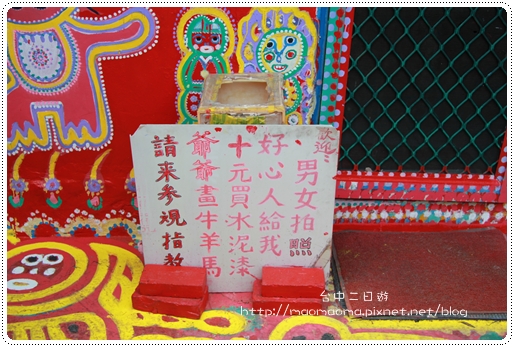 歡迎
男女拍
好心人給我
十元買水泥漆
爺爺畫牛羊馬
請來參視指教
台中二日遊
http://maomaoma.pixnet.net/blog